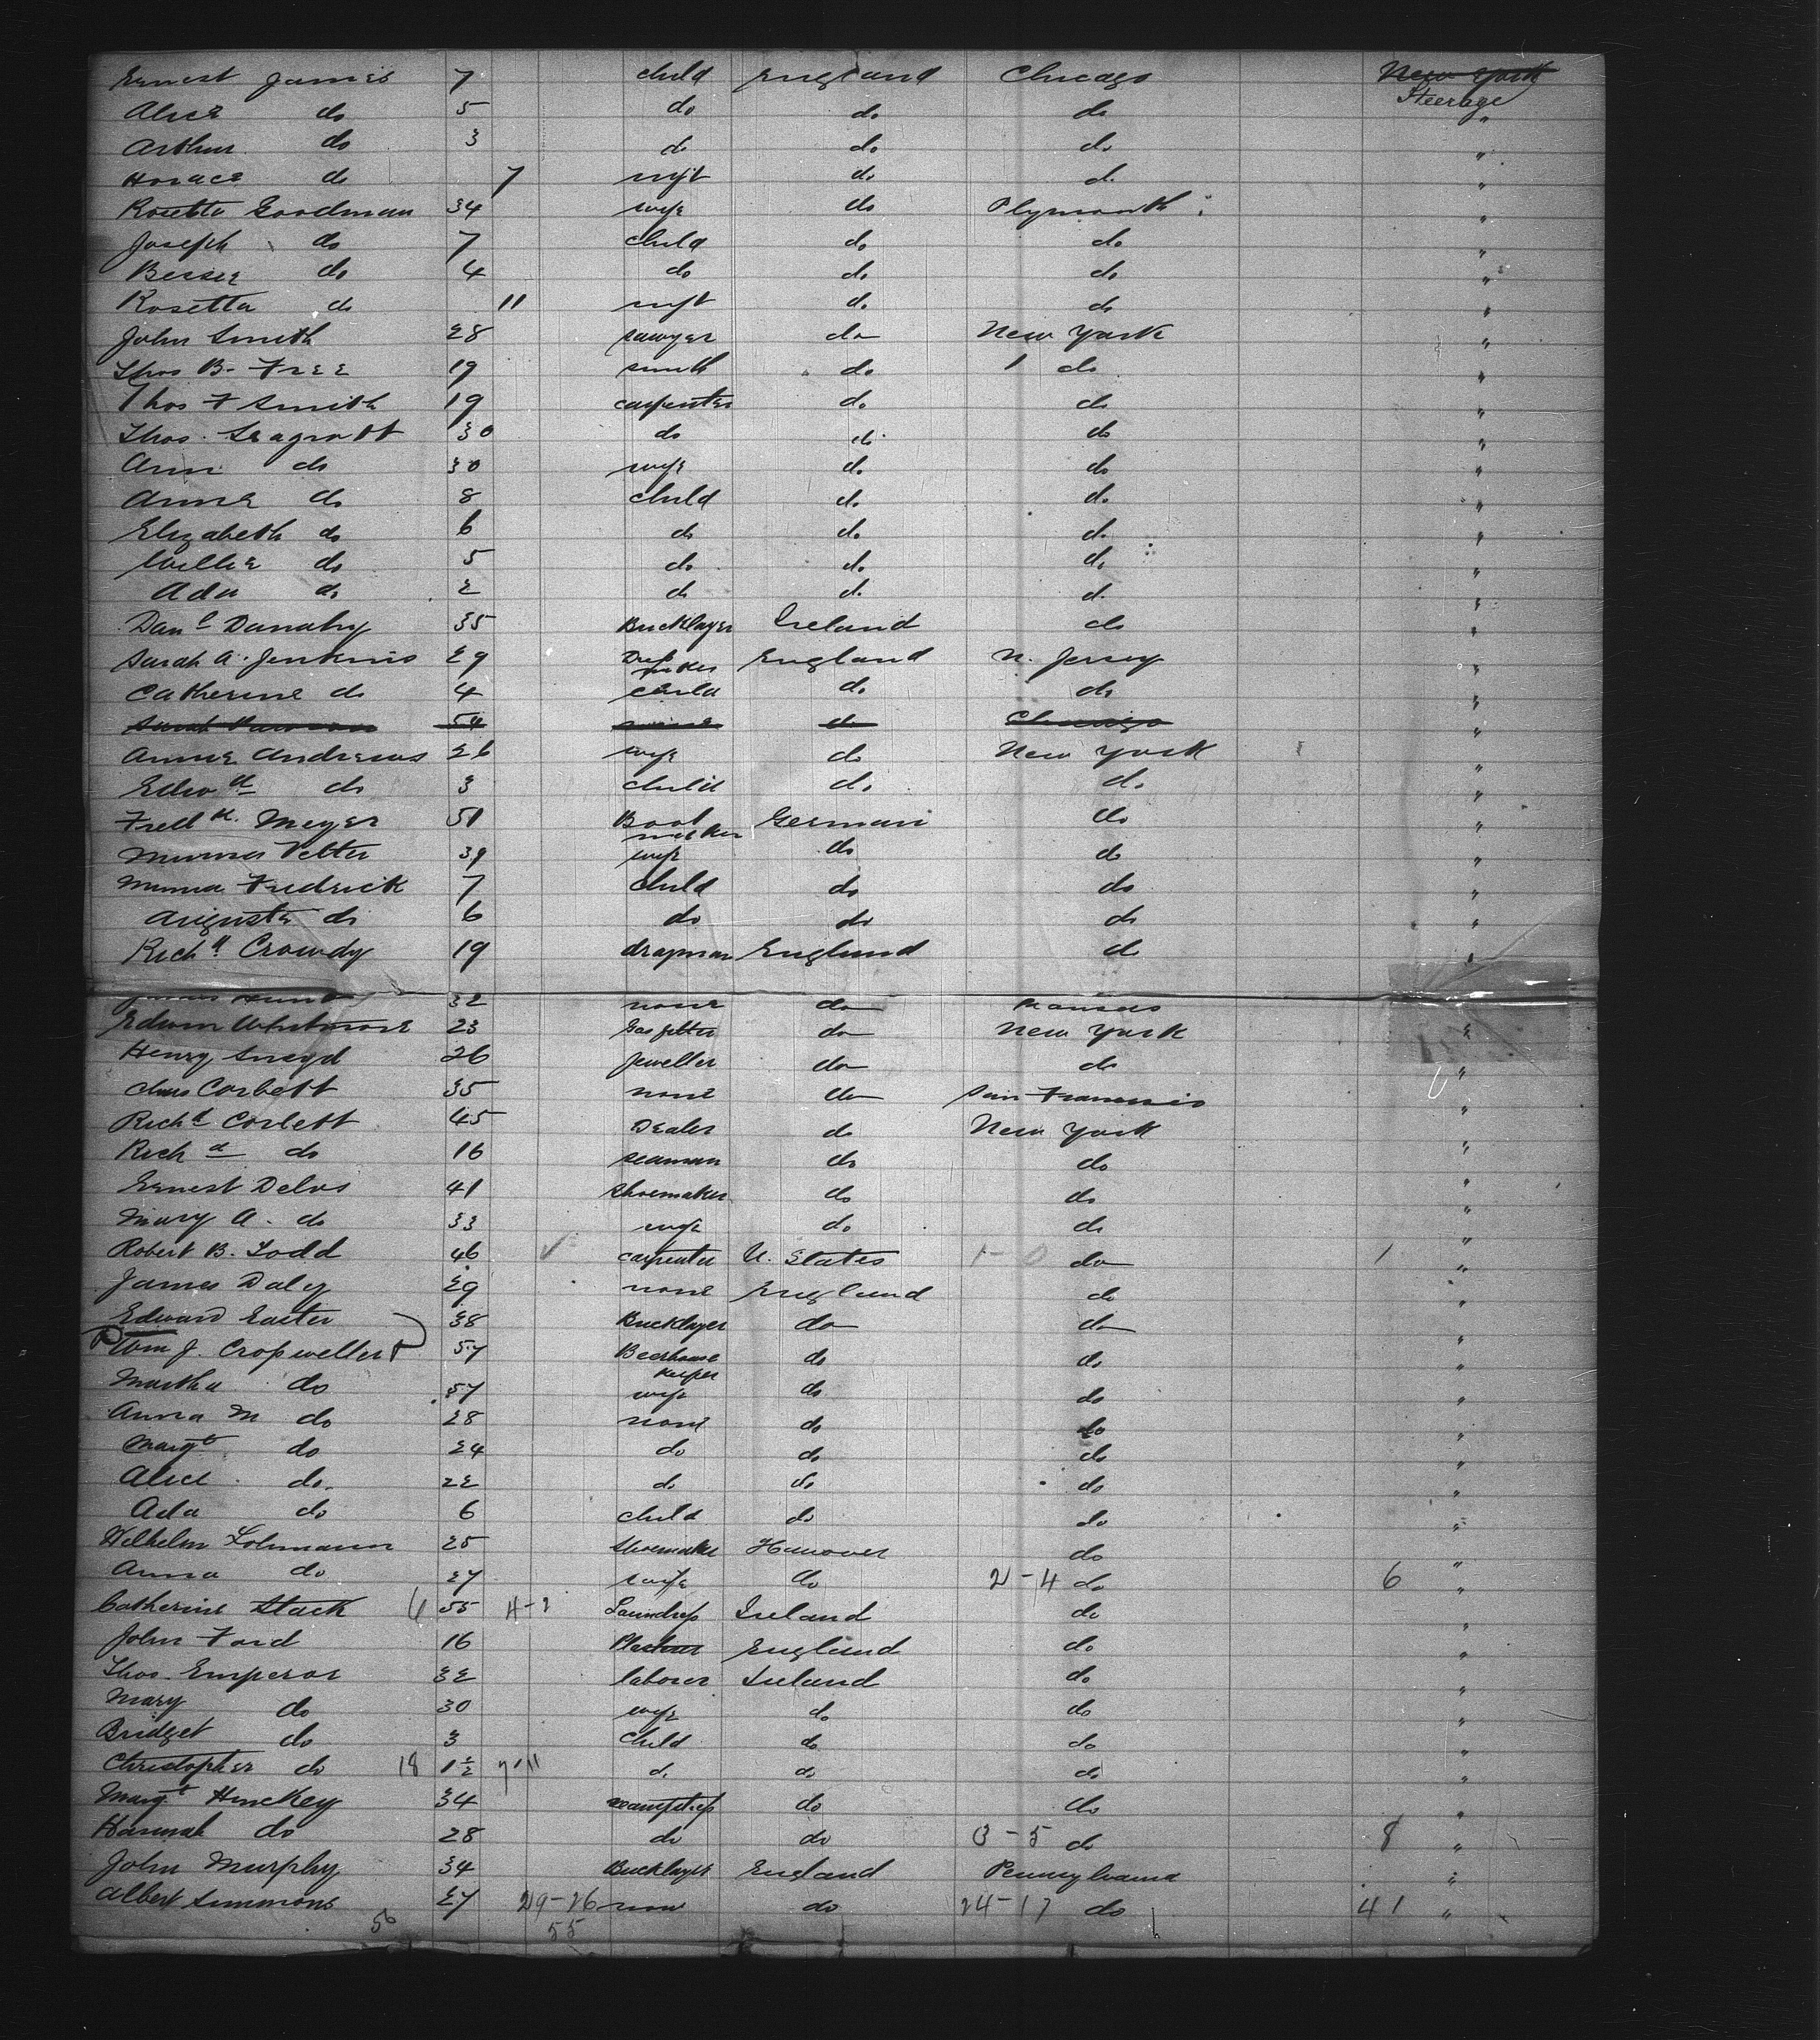 Ernest James 7 child England Chicago New York
Steerage
Alice do 5 do do do "
Arthur do 3 do do do "
Horace do 7 inft do do "
Rosetta Goodman 34 wife do Plymouth "
Joseph do 7 child do do "
Bessie do 4 do do do "
Rosetta do 11 inft do do "
John Smith 28 sawyer do New York "
Thos B. Free 19 smith do do "
Thos F Smith 19 carpenter do do "
Thos. Seagrott 30 do do do "
Ann do 30 wife do do "
Annie do 8 child do do "
Elizabeth do 6 do do do "
Willie do 5 do do do "
Ada do 2 do do do "
Danl Danahy 35 Bricklayer Ireland do "
Sarah A. Jenkins 29 Dress maker England N. Jersey "
Catherine do 4 child do do "
Sarah 54 do Chicago "
Annie Andrews 26 wife do New York "
Edwd do 3 child do do "
Fredk. Meyer 51 Boot maker German do "
Minna Vetter 39 wife do do "
Minna Fredrick 7 child do do "
Auguste do 6 do do do "
Richd Crowdy 19 drayman England do "
James Hunt 32 none do Kansas
Edwin Whitmore 23 Gasfitter do New York "
Henry Sneyd 26 Jeweller do do "
Chas Corbett 35 none do San Francisco "
Richd Corbett 45 Dealer do New York "
Richd do 16 seaman do do "
Ernest Delvs 41 shoemaker do do "
Mary A. do 33 wife do do "
Robert B. Todd 46 carpenter U. States 1-0 do 1 "
James Daley 29 none England do "
Edward Easter 38 Bricklayer do do "
Wm J. Cropweller 57 Beerhouse keeper do do "
Martha do 57 wife do do "
Anna M do 28 none do do "
Margt do 24 do do do "
Alice do. 22 do do do "
Ada do 6 child do do "
Wilhelm Lohmann 25 shoemaker Hanover do "
Anna do 27 wife do 2-4 do 6 "
Catherine Stack 55 4-2 Laundress Ireland do "
John Ford 16 Plasterer England do "
Thos. Emperor 32 laborer Ireland do "
Mary do 30 wife do do "
Bridget do 3 child do do "
Christopher do 18 1½ 7-11 do do do "
Margt Hinckey 34 seamstress do do "
Hannah do 28 do do 3-5 do 8 "
John Murphy 34 Bricklayer England Pennsylvania "
Albert Simmons 27 29-26 none do 24-17 do 41 "
55